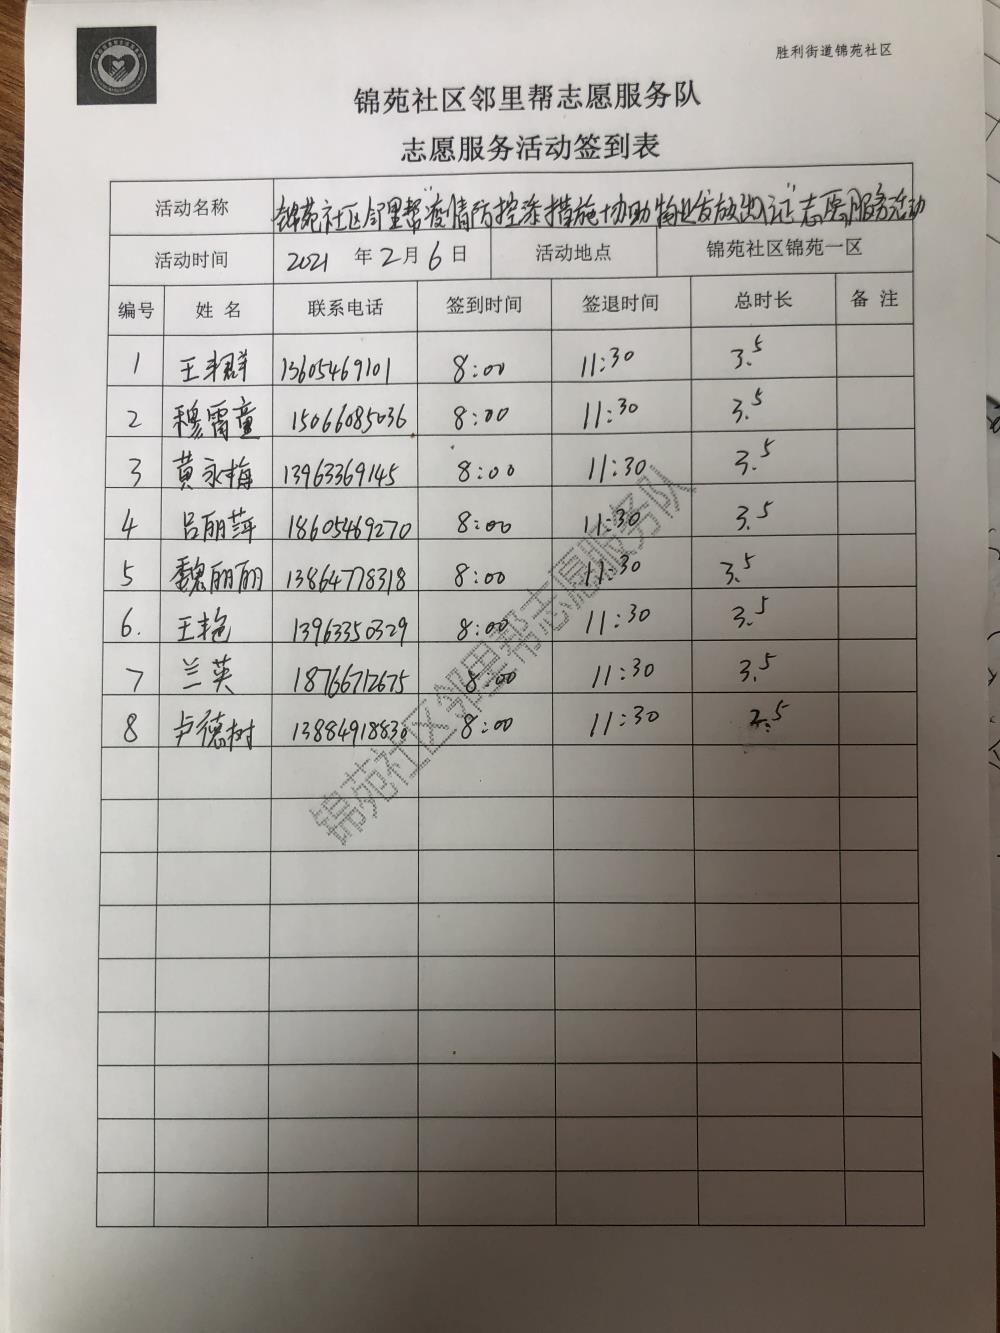 胜利街道锦苑社区
锦苑社区邻里帮志愿服务队
志愿服务活动签到表
活动名称 锦苑社区邻里帮"疫情防控 措施 协助物业发放出门证"志愿服务活动
活动时间 2021 年 2 月 6 日 活动地点 锦苑社区锦苑一区
编号 姓 名 联系电话 签到时间 签退时间 总时长 备 注
1 王翠群 13605469101 8:00 11:30 3.5
2 穆雷童 15066085036 8:00 11:30 3.5
3 黄永梅 13963369145 8:00 11:30 3.5
4 吕丽萍 18605469270 8:00 11:30 3.5
5 魏丽丽 13864778318 8:00 11:30 3.5
6. 王艳 13963350329 8:00 11:30 3.5
7 兰英 18766712675 8:00 11:30 3.5
8 卢德树 13884918830 8:00 11:30 3.5
锦苑社区邻里帮志愿服务队